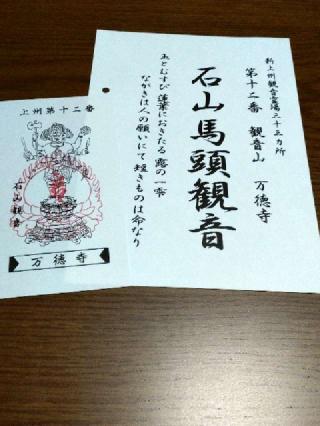 新上州観音霊場三十三カ所
第十二番 観音山 万徳寺
石山馬頭観音
玉とむすび 蓮葉におきたる 露の一雫
ながきは人の願いにて短きものは命なり
上州第十二番
石山観音
万徳寺